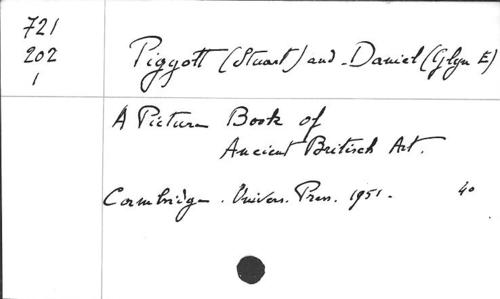 721
202
1
Piggott (Stuart) and Daniel (Glyn E)
A Picture Book of
Ancient British Art.
Cambridge. Univers. Press. 1951. 4o